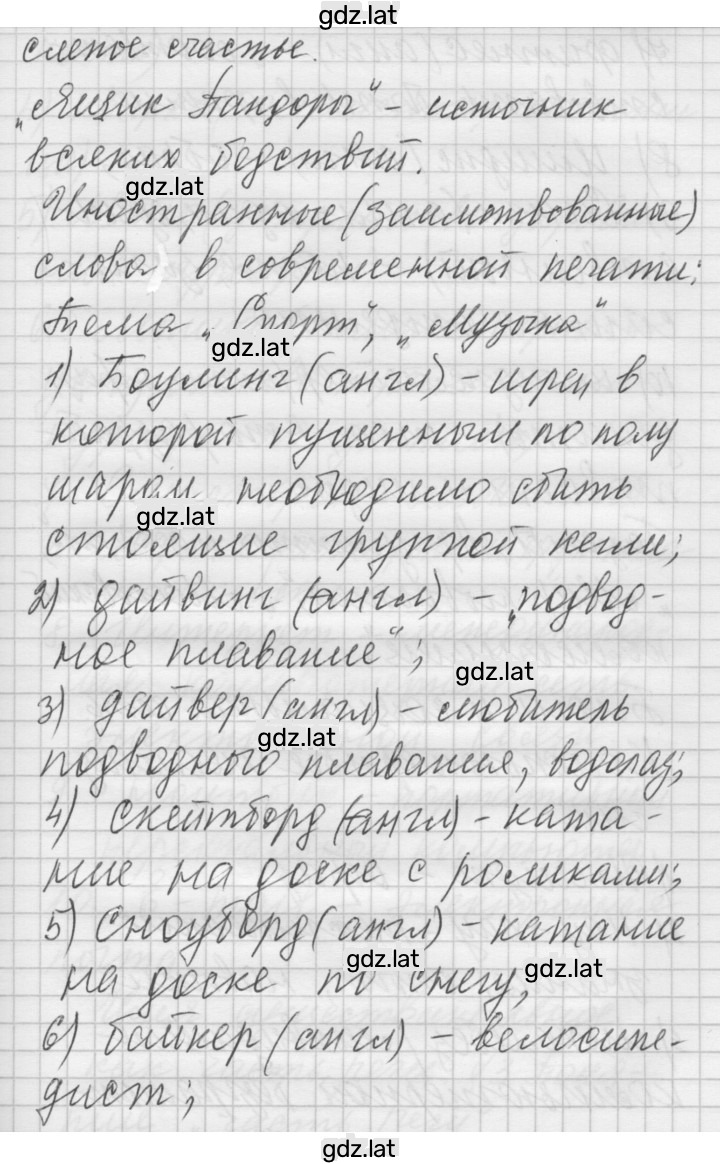 gdz.lat
слепое счастье.
„Ящик Пандоры“ – источник
всяких бедствий.
gdz.lat
Иностранные (заимствованные)
слова в современной печати:
Тема „Спорт“, „Музыка“
gdz.lat
1) Боулинг (англ) – игра в
которой пущенным по полу
шаром необходимо сбить
gdz.lat
стоящие группой кегли;
2) дайвинг (англ) – „подвод-
ное плавание“;
gdz.lat
3) дайвер (англ) – любитель
gdz.lat
подводного плавания, водолаз;
4) скейтборд (англ) – ката-
ние на доске с роликами;
5) сноуборд (англ) – катание
gdz.lat gdz.lat
на доске по снегу;
6) байкер (англ) – велосипе-
дист;
gdz.lat